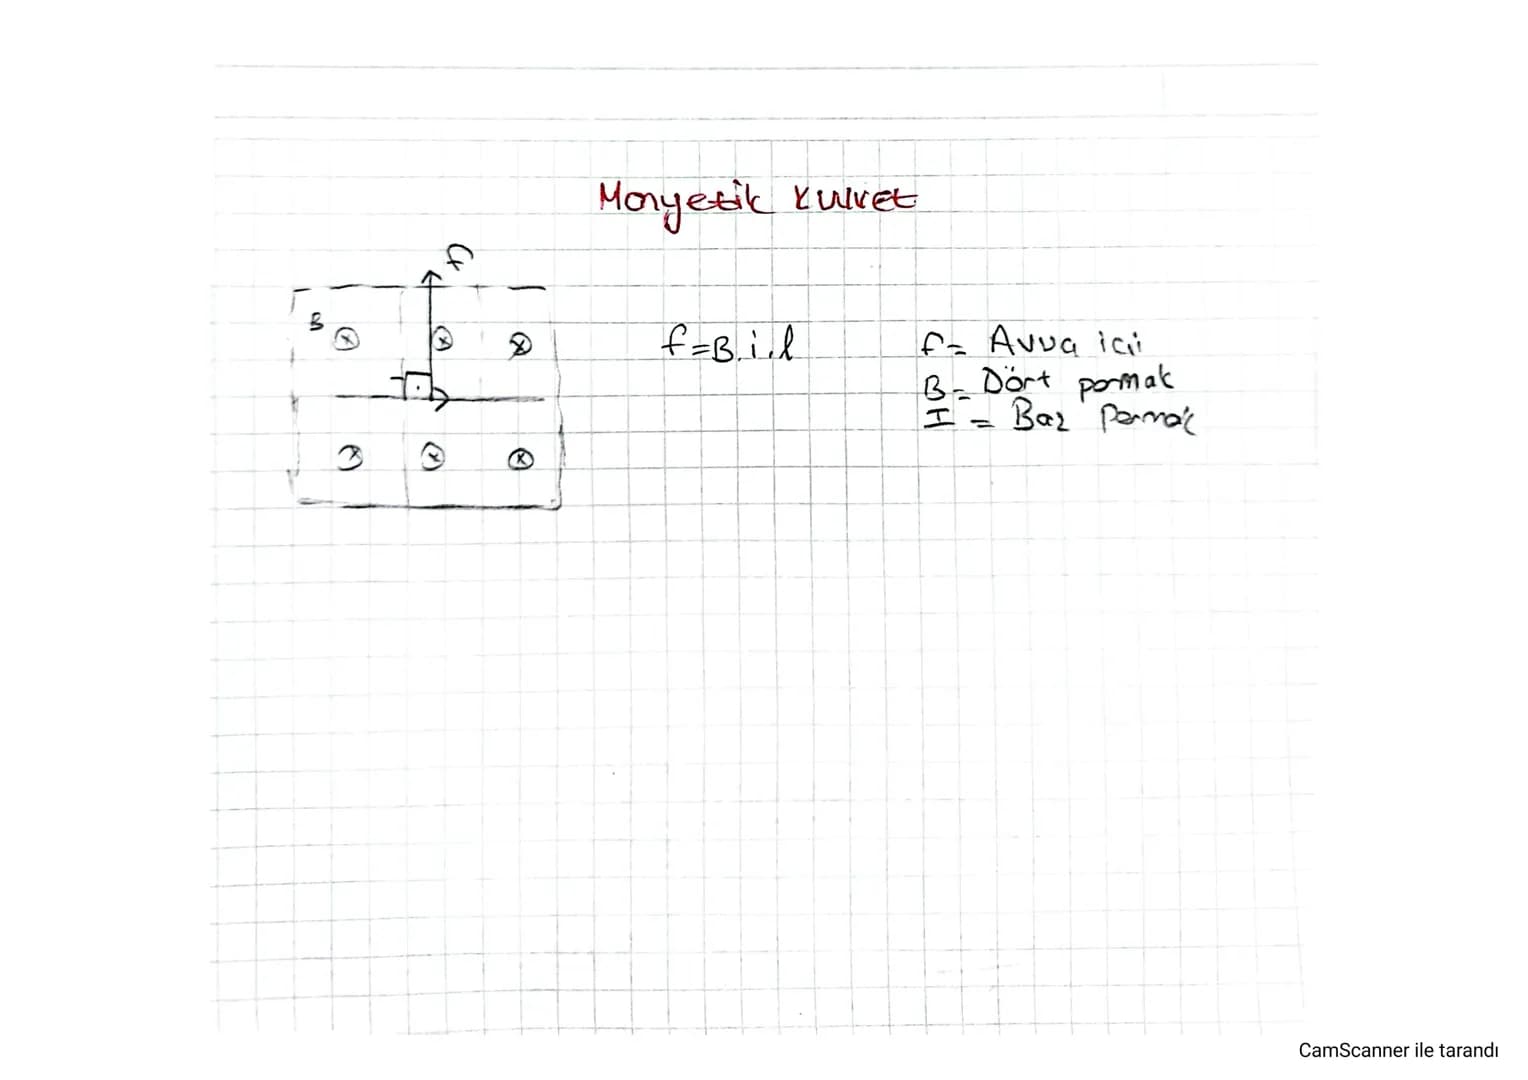 Manyetik Kuvvet
f
B
f=B.i.l
f= Avua içi
B= Dört parmak
I = Baş Parmak
CamScanner ile tarandı